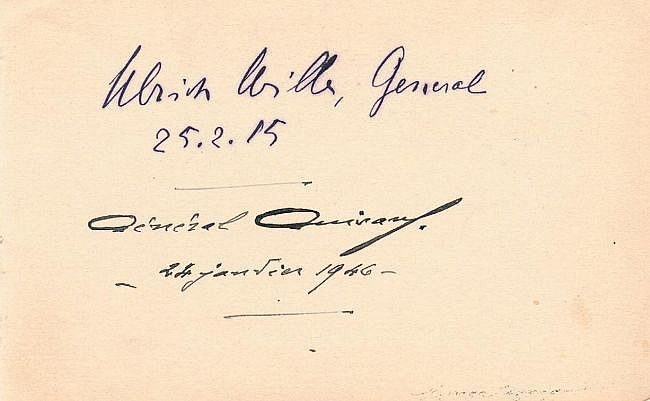 Ulrich Wille, General
25.2.15
Général Guisan.
- 24 janvier 1946 -